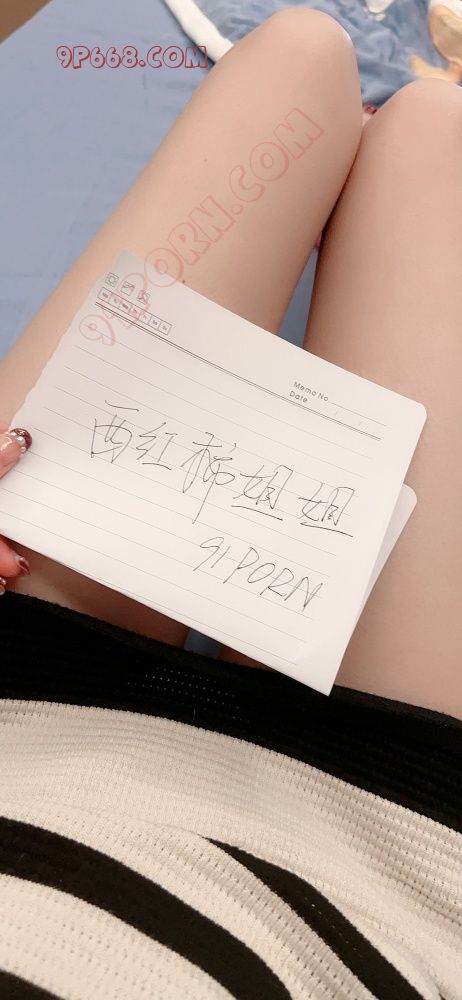 9P668.COM
91PORN.COM
Memo No.
Date
西红柿姐姐
91PORN